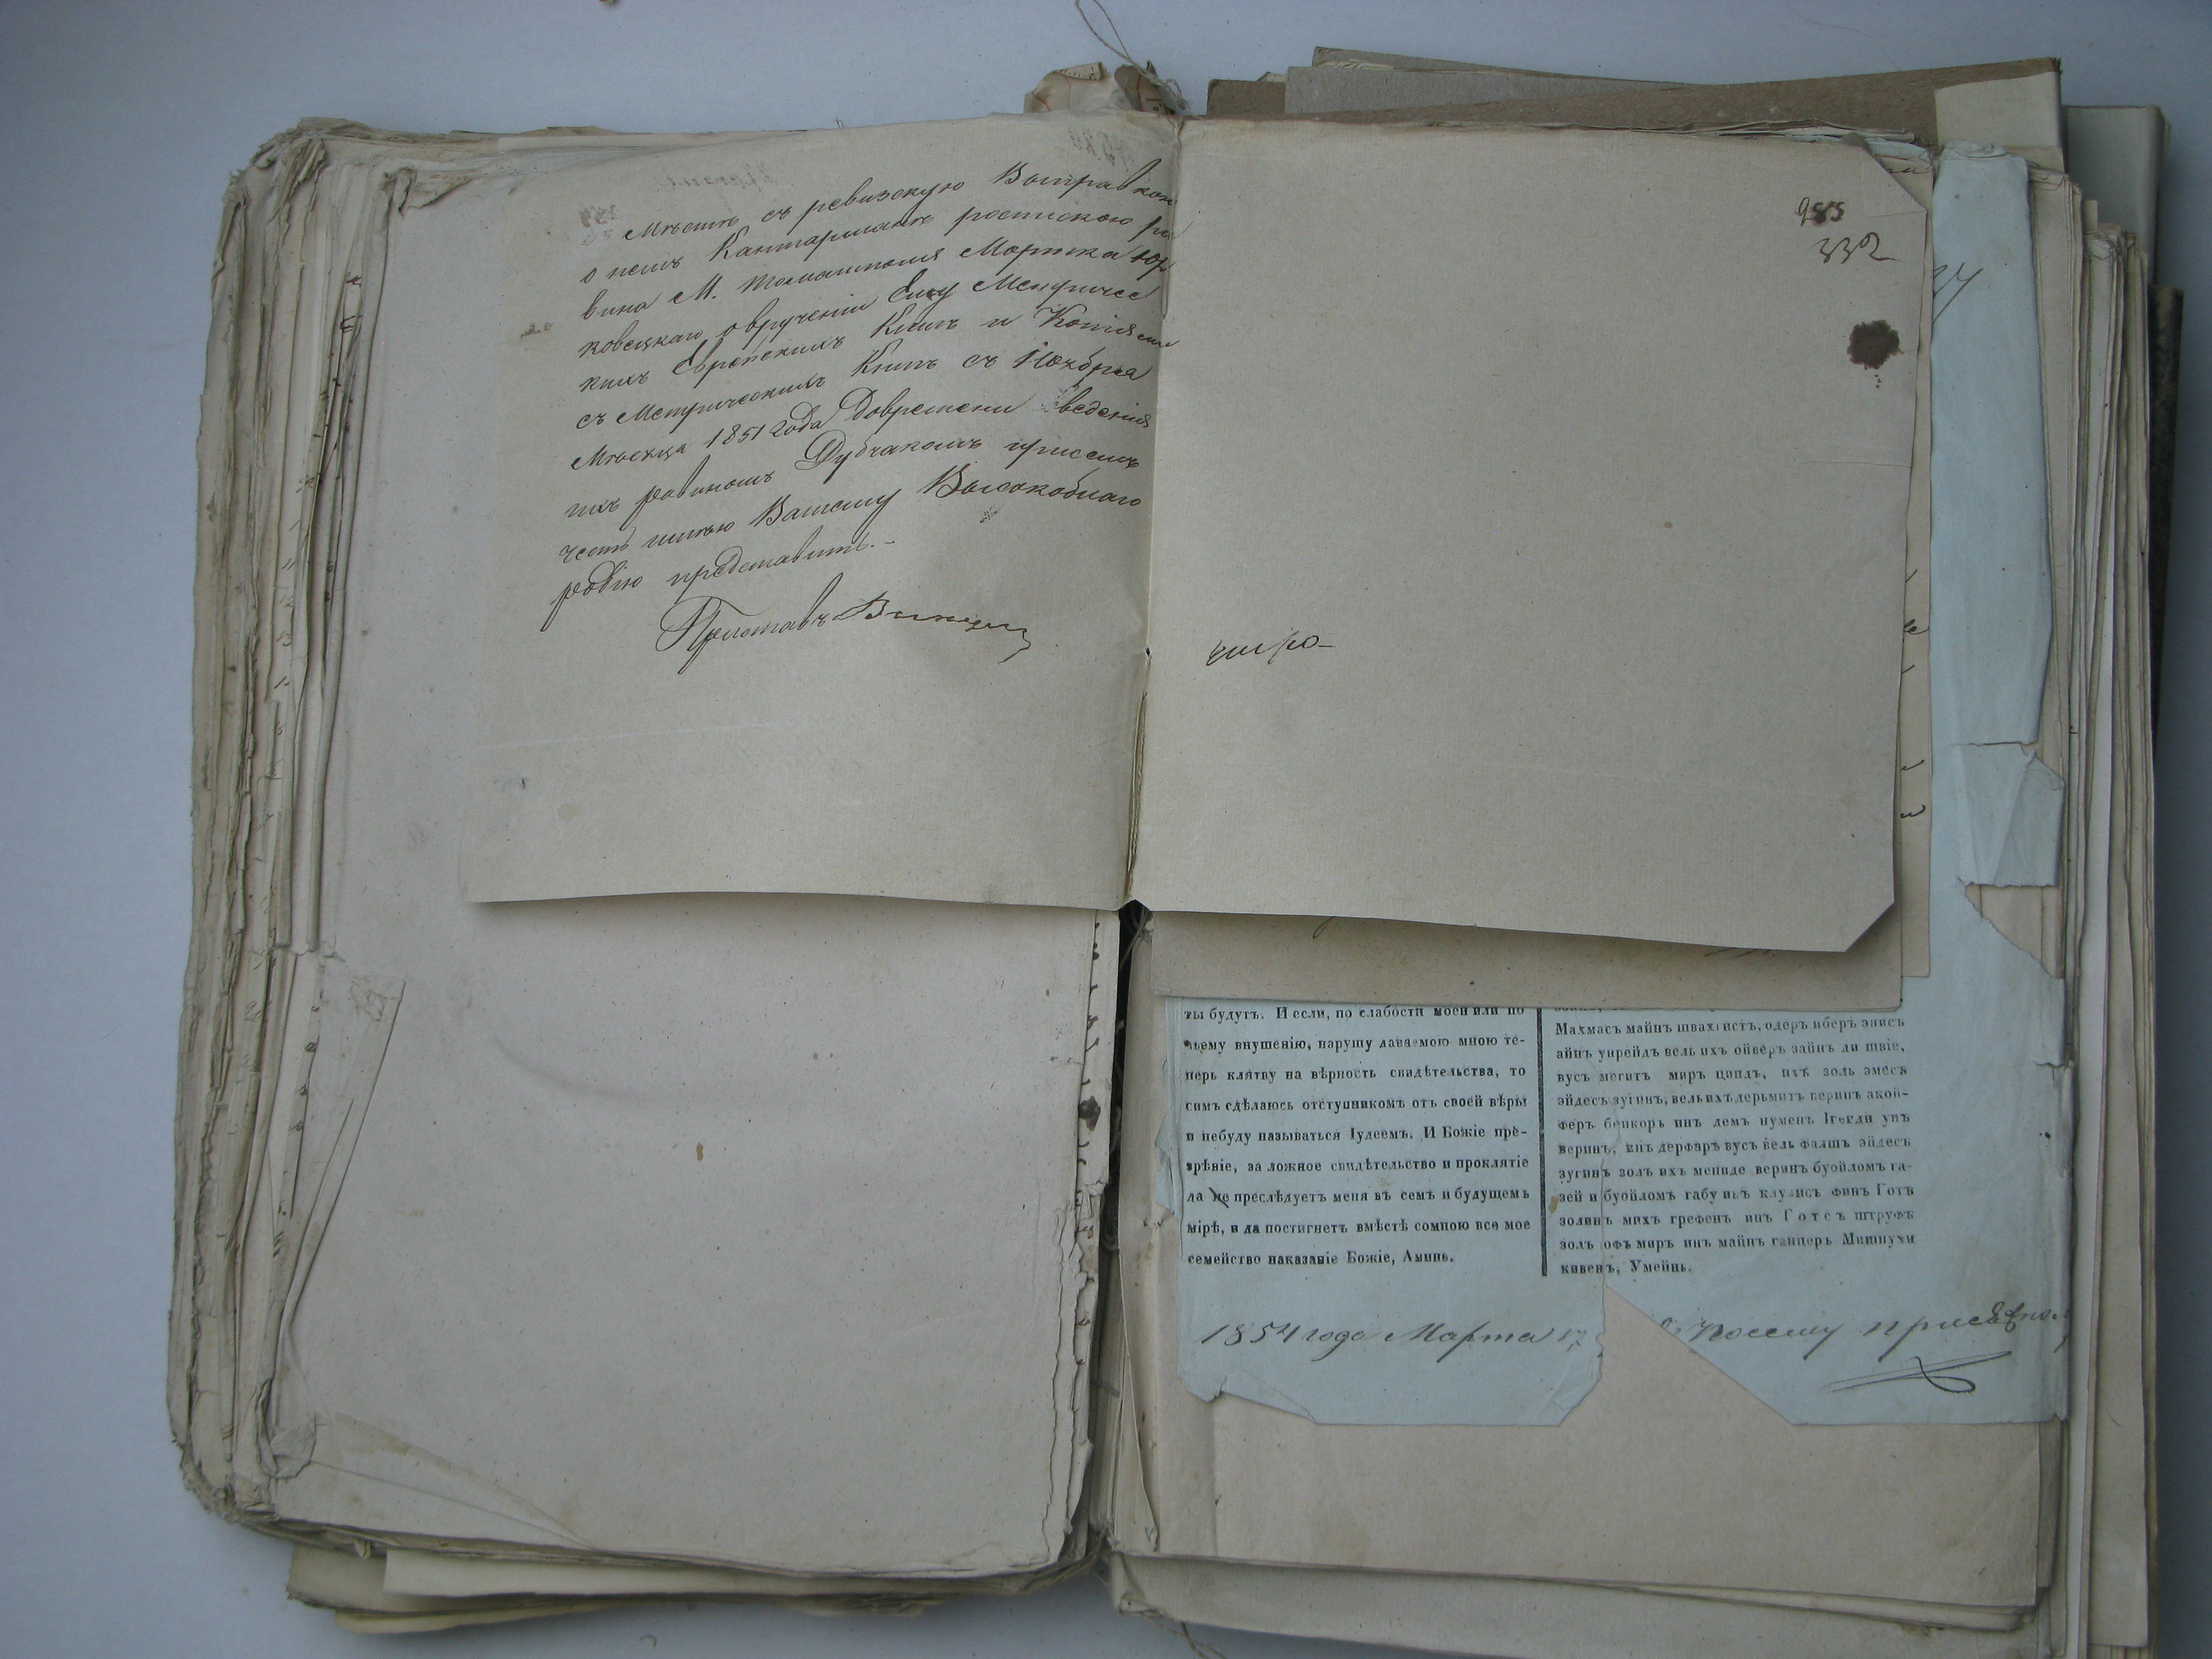 Мѣстѣ съ ревизскую Выправкою
о немъ Кантарманѣ роспискою ра
вина М. Томашполя Мортка Юр
ковецкаго о врученіи Ему Метричес
кихъ Еврейскихъ Книгъ и Копіями
съ Метрическихъ Книгъ съ Ноября
Мѣсяца 1851 года Довремени ведения
ихъ равиномъ Дубчакомъ присемъ
честь имѣю Вашему Высокоблаго
родію представить.-
Приставъ
332
ты будутъ. И если, по слабости моей или по
чьему внушенію, нарушу даваемою мною те-
перь клятву на вѣрность свидѣтельства, то
симъ сдѣлаюсь отступникомъ отъ своей вѣры
и небуду называться Іудеемъ. И Божіе пре-
зрѣніе, за ложное свидѣтельство и проклятіе
да не преслѣдуетъ меня въ семъ и будущемъ
мірѣ, и да постигнетъ вмѣстѣ сомною все мое
семейство наказаніе Божіе, Аминь.
Махмасъ майнъ швахистъ, одеръ иберъ эписъ
айнъ унрейдъ вель ихъ ойверъ зайнъ ди швіе,
вусъ мегитъ миръ циндъ, ихъ золь эмесъ
эйдесъ зугинъ, вель ихъ дерьмитъ веринъ акой-
феръ бейкоръ инъ демъ нуменъ Ігегди унъ
веринъ, инъ дерфаръ вусъ вель фалшъ эйдесъ
зугинъ золъ ихъ мениде веринъ буойломъ га-
зей и буойломъ габу инъ клулисъ финъ Готъ
золинъ михъ грефенъ инъ Готсъ штруфъ
золъ офъ миръ инъ майнъ ганцеръ Мишпухи
кивенъ, Умейнъ.
1854 года Марта 17
посему присяжно